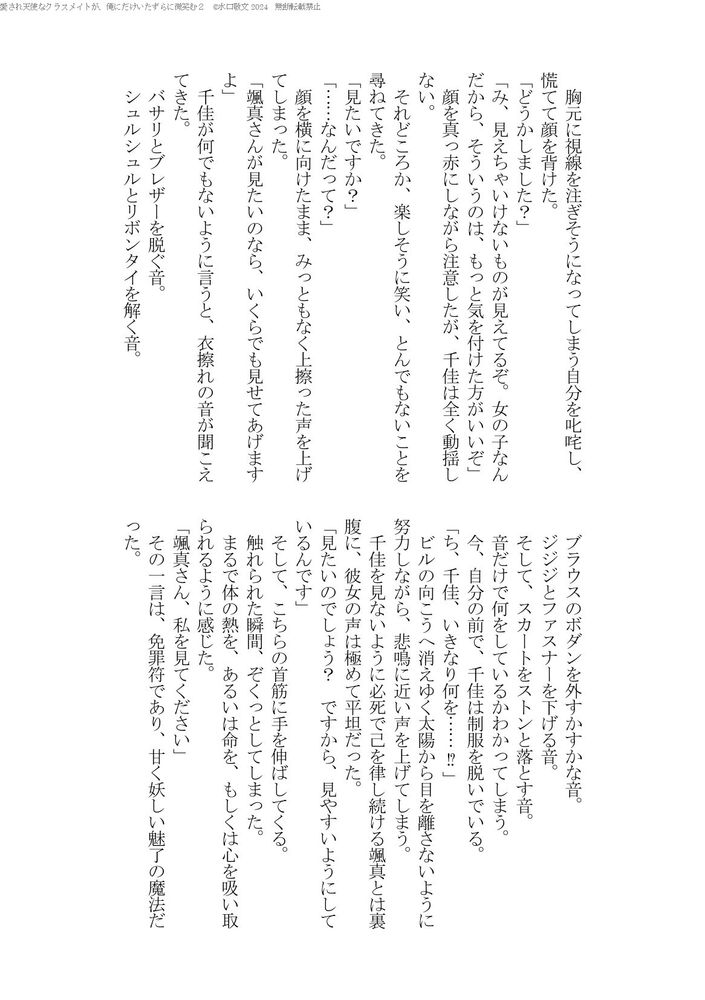 愛され天使なクラスメイトが、俺にだけいたずらに微笑む２　©水口敬文 2024　無断転載禁止
胸元に視線を注ぎそうになってしまう自分を叱咤し、
慌てて顔を背けた。
「どうかしました？」
「み、見えちゃいけないものが見えてるぞ。女の子なん
だから、そういうのは、もっと気を付けた方がいいぞ」
顔を真っ赤にしながら注意したが、千佳は全く動揺し
ない。
それどころか、楽しそうに笑い、とんでもないことを
尋ねてきた。
「見たいですか？」
「……なんだって？」
顔を横に向けたまま、みっともなく上擦った声を上げ
てしまった。
「颯真さんが見たいのなら、いくらでも見せてあげます
よ」
千佳が何でもないように言うと、衣擦れの音が聞こえ
てきた。
バサリとブレザーを脱ぐ音。
シュルシュルとリボンタイを解く音。
ブラウスのボタンを外すかすかな音。
ジジジとファスナーを下げる音。
そして、スカートをストンと落とす音。
音だけで何をしているかわかってしまう。
今、自分の前で、千佳は制服を脱いでいる。
「ち、千佳、いきなり何を……⁉」
ビルの向こうへ消えゆく太陽から目を離さないように
努力しながら、悲鳴に近い声を上げてしまう。
千佳を見ないように必死で己を律し続ける颯真とは裏
腹に、彼女の声は極めて平坦だった。
「見たいのでしょう？　ですから、見やすいようにして
いるんです」
そして、こちらの首筋に手を伸ばしてくる。
触れられた瞬間、ぞくっとしてしまった。
まるで体の熱を、あるいは命を、もしくは心を吸い取
られるように感じた。
「颯真さん、私を見てください」
その一言は、免罪符であり、甘く妖しい魅了の魔法だ
った。